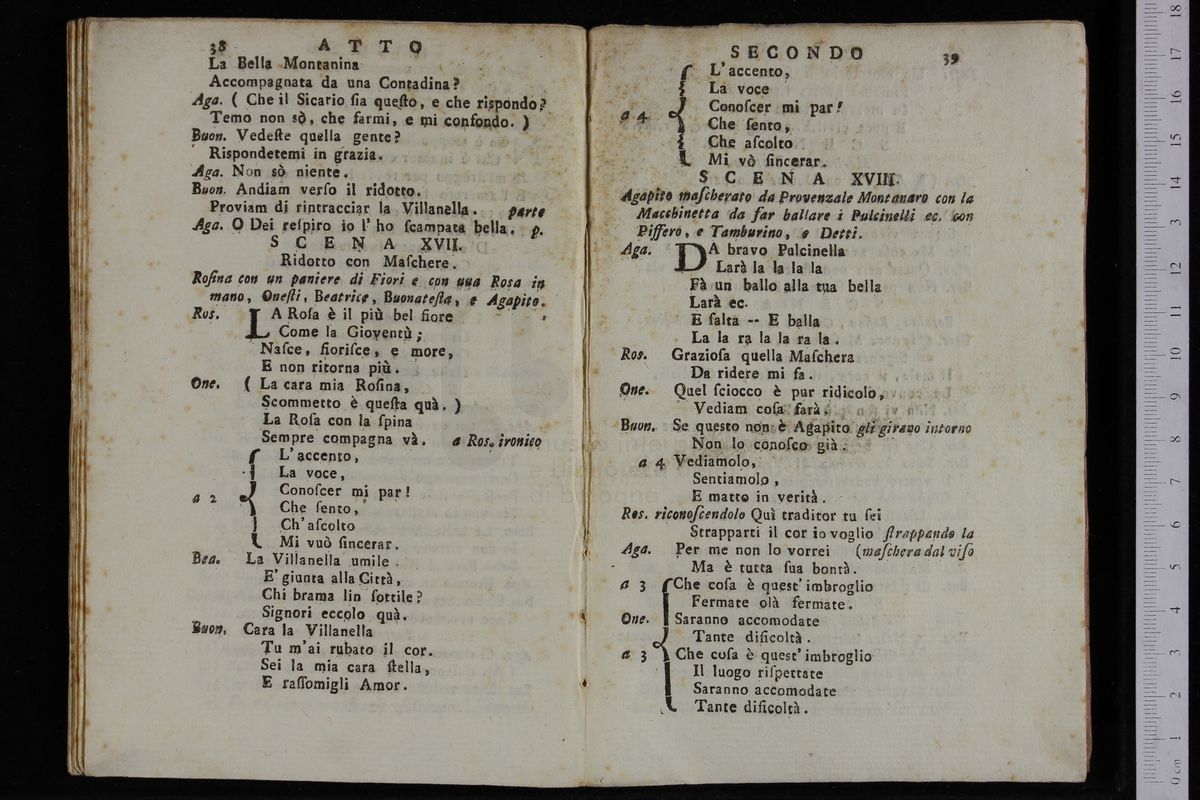 38 ATTO
La Bella Montanina
Accompagnata da una Contadina?
Aga. ( Che il Sicario ſia queſto, e che riſpondo?
Temo non sò, che farmi, e mi confondo. )
Buon. Vedeſte quella gente?
Riſpondetemi in grazia.
Aga. Non sò niente.
Buon. Andiam verſo il ridotto.
Proviam di rintracciar la Villanella. parte
Aga. O Dei reſpiro io l' ho ſcampata bella. p.
SCENA XVII.
Ridotto con Maſchere.
Roſina con un paniere di Fiori e con una Rosa in
mano, Oneſti, Beatrice, Buonateſta, e Agapito.
Ros. LA Roſa è il più bel fiore
Come la Gioventù;
Naſce, fioriſce, e more,
E non ritorna più.
One. ( La cara mia Roſina,
Scommetto è queſta quà. )
La Roſa con la ſpina
Sempre compagna và. a Ros. ironico
L'accento,
La voce,
Conoſcer mi par!
a 2 Che ſento,
Ch'aſcolto
Mi vuò ſincerar.
Bea. La Villanella umile
E' giunta alla Città,
Chi brama lin ſottile?
Signori eccolo quà.
Buon. Cara la Villanella
Tu m'ai rubato il cor.
Sei la mia cara ſtella,
E raſſomigli Amor.
SECONDO 39
L'accento,
La voce
Conoſcer mi par!
a 4 Che ſento,
Che aſcolto
Mi vò ſincerar.
SCENA XVIII.
Agapito maſcherato da Provenzale Montanaro con la
Macchinetta da far ballare i Pulcinelli ec. con
Piffero, e Tamburino, e Detti.
Aga. DA bravo Pulcinella
Larà la la la la
Fà un ballo alla tua bella
Larà ec.
E ſalta -- E balla
La la ra la la ra la.
Ros. Grazioſa quella Maſchera
Da ridere mi fa.
One. Quel ſciocco è pur ridicolo,
Vediam coſa farà.
Buon. Se questo non è Agapito gli girano intorno
Non lo conoſco già.
a 4 Vediamolo,
Sentiamolo,
E matto in verità.
Ros. riconoſcendolo Quì traditor tu ſei
Strapparti il cor io voglio ſtrappando la
Aga. Per me non lo vorrei (maſchera dal viſo
Ma è tutta ſua bontà.
a 3 Che coſa è quest' imbroglio
Fermate olà fermate.
One. Saranno accomodate
Tante dificoltà.
a 3 Che coſa è quest' imbroglio
Il luogo riſpettate
Saranno accomodate
Tante dificoltà.